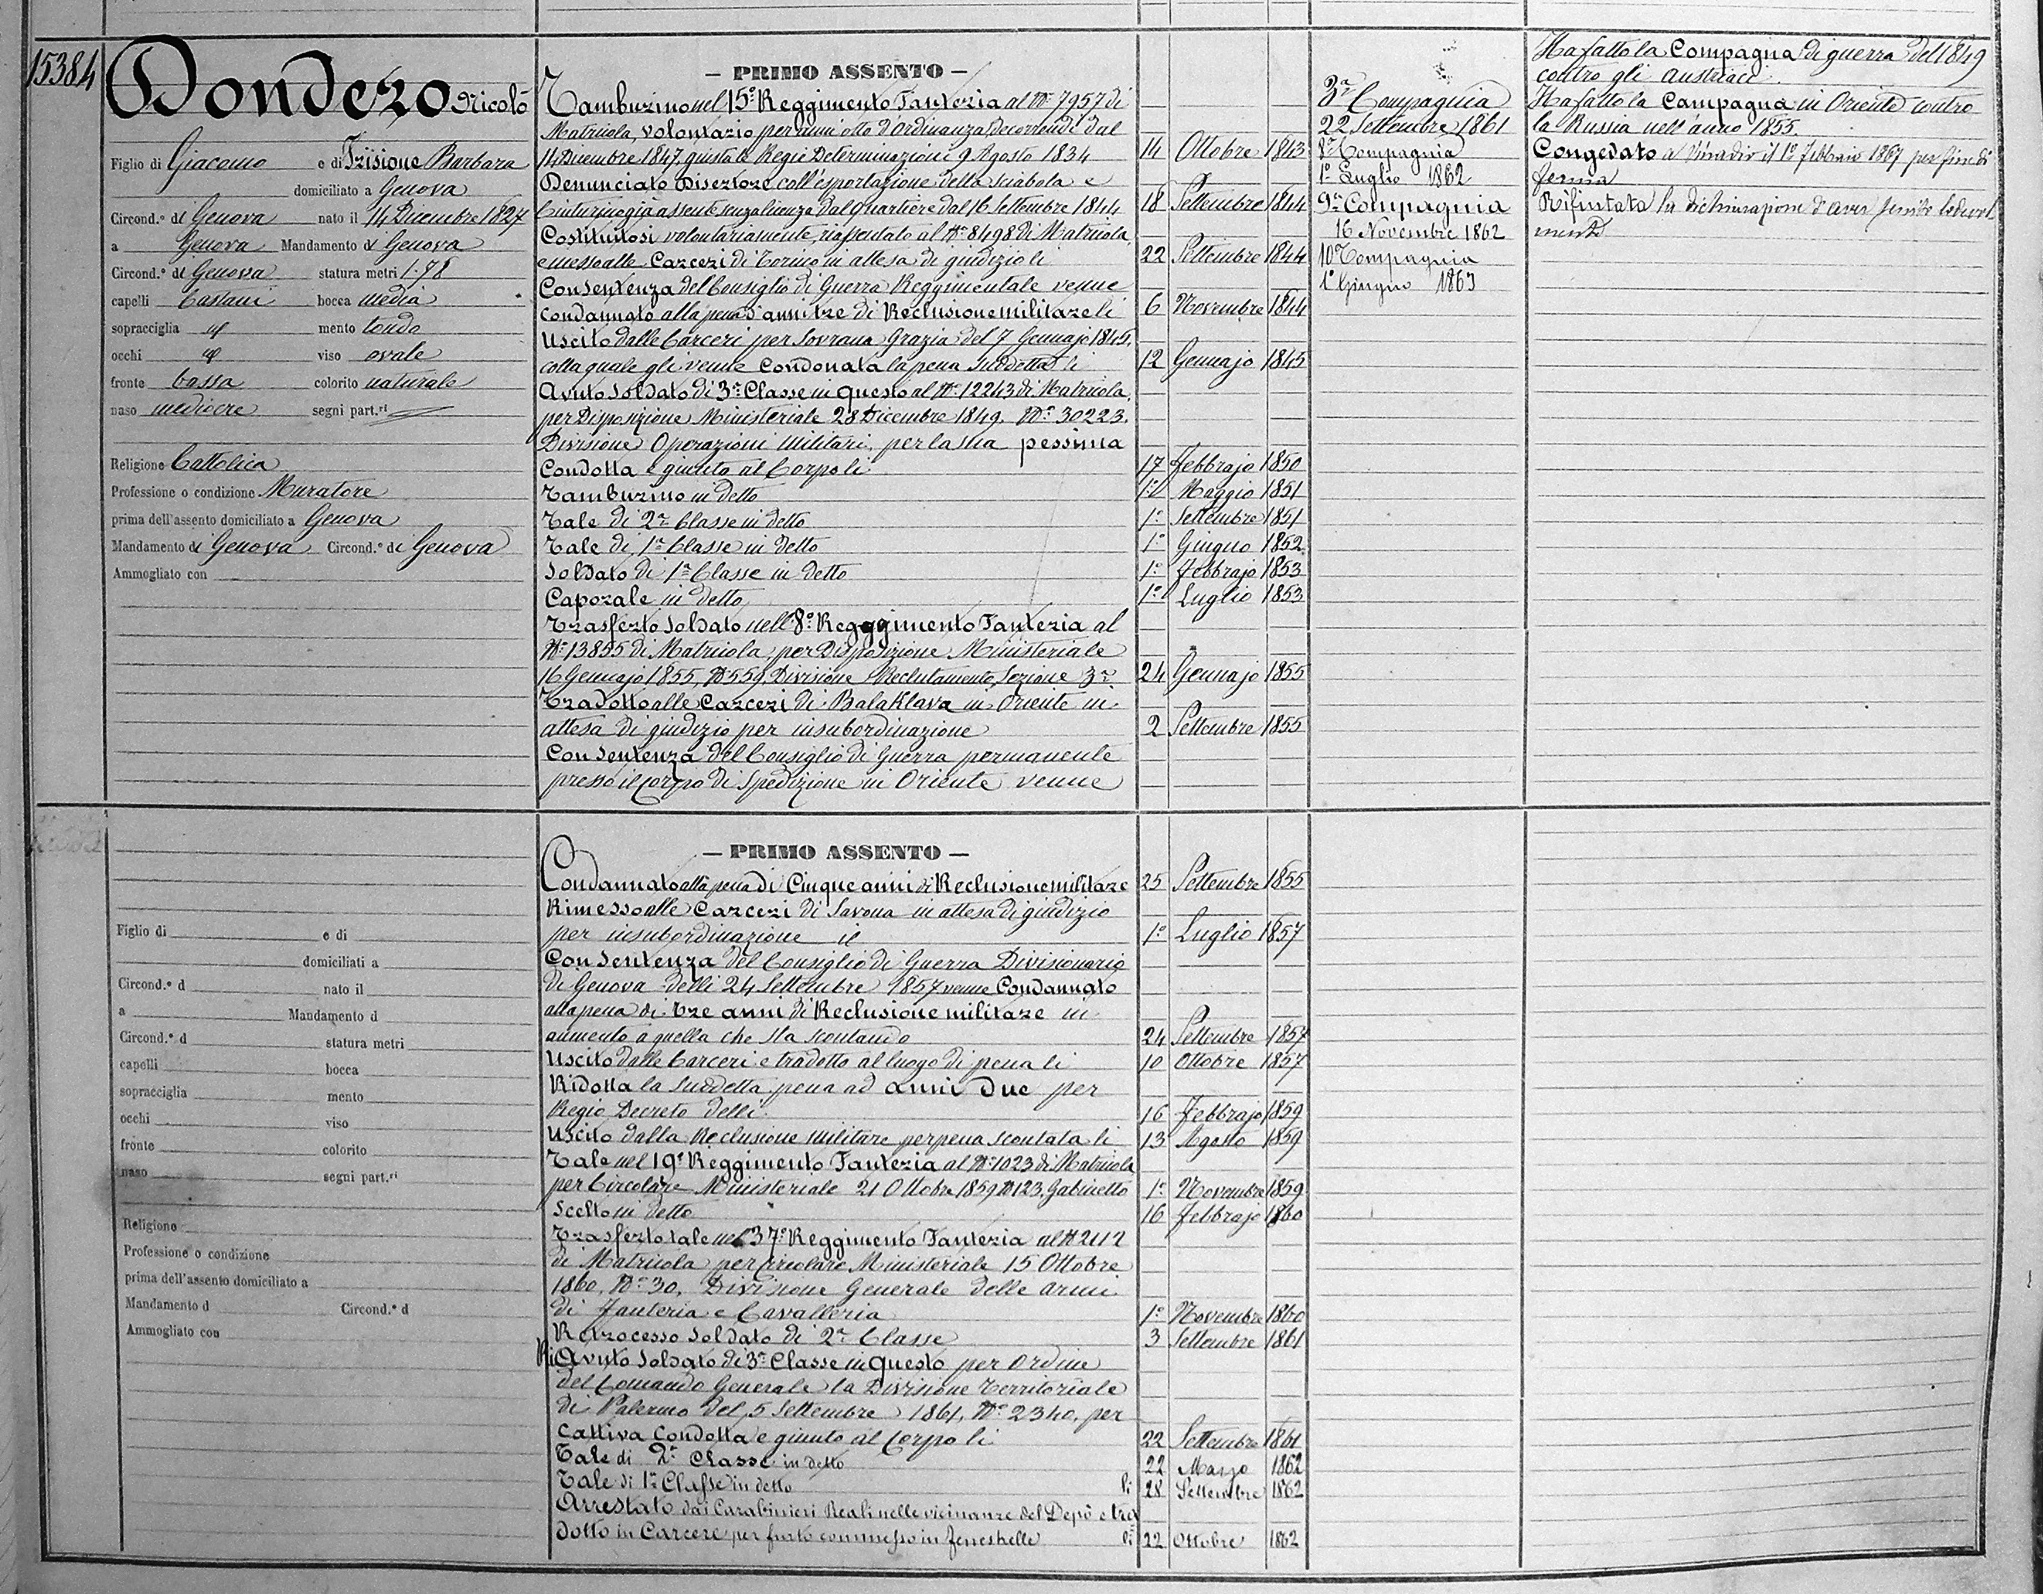 15384
Dondero Nicolò
Figlio di Giacomo e di Frisione Barbara
domiciliato a Genova
Circond.º di Genova nato il 14 Dicembre 1827
a Genova Mandamento di Genova
Circond.º di Genova statura metri 1.78
capelli Castani bocca media
sopracciglia id mento tondo
occhi id viso ovale
fronte bassa colorito naturale
naso mediocre segni part.ri
Religione Cattolica
Professione o condizione Muratore
prima dell'assento domiciliato a Genova
Mandamento di Genova Circond.º di Genova
Ammogliato con
— PRIMO ASSENTO —
Tamburino nel 15º Reggimento Fanteria al Nº 7957 di
Matricola, volontario per anni otto d'Ordinanza, decorrendi dal
14 Dicembre 1847, giusta le Regie Determinazioni 9 Agosto 1834 14 Ottobre 1843
Denunciato Disertore coll'esportazione della sciabola e
Cinturino già assente senza licenza dal quartiere dal 16 Settembre 1844 18 Settembre 1844
Costituitosi volontariamente, riassentato al Nº 8498 di Matricola,
e messo alle Carceri di Torino in attesa di giudizio li 22 Settembre 1844
Con Sentenza del Consiglio di Guerra Reggimentale venne
Condannato alla pena d'anni tre di Reclusione militare li 6 Novembre 1844
Uscito dalle Carceri per Sovrana Grazia del 7 Gennajo 1845,
colla quale gli venne Condonata la pena suddetta li 12 Gennajo 1845
Avuto Soldato di 3ª Classe in questo al Nº 12243 di Matricola,
per Disposizione Ministeriale 28 Dicembre 1849. Nº 30223.
Divisione Operazioni Militari, per la sua pessima
Condotta e giunto al Corpo li 17 febbrajo 1850
Tamburino in detto 1º Maggio 1851
Tale di 2ª Classe in detto 1º Settembre 1851
Tale di 1ª Classe in detto 1º Giugno 1852
Soldato di 1ª Classe in detto 1º febbrajo 1853
Caporale in detto 1º Luglio 1853
Trasferto Soldato nell'8º Regggimento Fanteria al
Nº 13855 di Matricola, per Disposizione Ministeriale
16 Gennajo 1855, Nº 559, Divisione Reclutamento, Sezione 3ª 24 Gennajo 1855
Tradotto alle Carceri di Balaklava in Oriente in
attesa di giudizio per insubordinazione 2 Settembre 1855
Con Sentenza del Consiglio di Guerra permanente
presso il Corpo di Spedizione in Oriente venne
3ª Compagnia
22 Settembre 1861
8ª Compagnia
1º Luglio 1862
9ª Compagnia
16 Novembre 1862
10ª Compagnia
1º Giugno 1863
Ha fatto la Compagna di guerra del 1849
contro gli Austriaci.
Ha fatto la Campagna in Oriente contro
la Russia nell'anno 1855.
Congedato a Vinadio il 1º Febbraio 1867 per fine di
ferma
Rifiutata la dichiarazione d'aver servito lodevol
mente
— PRIMO ASSENTO —
Condannato alla pena di Cinque anni di Reclusione militare 25 Settembre 1855
Rimesso alle Carceri di Savona in attesa di giudizio
per insubordinazione il 1º Luglio 1857
Con Sentenza del Consiglio di Guerra Divisionario
di Genova delli 24 Settembre 1857 venne Condannato
alla pena di tre anni di Reclusione militare in
aumento a quella che sta scontando 24 Settembre 1857
Uscito dalle Carceri e tradotto al luogo di pena li 10 Ottobre 1857
Ridotta la suddetta pena ad anni Due per
Regio Decreto delli 16 Febbrajo 1859
Uscito dalla Reclusione militare per pena scontata li 13 Agosto 1859
Tale nel 19º Reggimento Fanteria al Nº 1023 di Matricola
per Circolare Ministeriale 21 Ottobre 1859 Nº 123, Gabinetto 1º Novembre 1859
Scelto in detto 16 febbrajo 1860
Trasferto tale nel 37º Reggimento Fanteria al Nº 2112
di Matricola per Circolare Ministeriale 15 Ottobre
1860, Nº 30, Divisione Generale delle armi
di Fanteria e Cavalleria 1º Novembre 1860
Retrocesso Soldato di 2ª Classe 3 Settembre 1861
RiAvuto Soldato di 3ª Classe in questo per Ordine
del Comando Generale la Divisione Territoriale
di Palermo del 5 Settembre 1861, Nº 2340, per
Cattiva Condotta e giunto al Corpo li 22 Settembre 1861
Tale di 2ª Classe in detto 22 Marzo 1862
Tale di 1ª Classe in detto li 28 Settembre 1862
Arrestato dai Carabinieri Reali nelle vicinanze del Depò e tra
dotto in Carcere per furto commesso in fenestrelle li 22 Ottobre 1862
Figlio di e di
domiciliati a
Circond.º d nato il
a Mandamento d
Circond.º d statura metri
capelli bocca
sopracciglia mento
occhi viso
fronte colorito
naso segni part.ri
Religione
Professione o condizione
prima dell'assento domiciliato a
Mandamento d Circond.º d
Ammogliato con